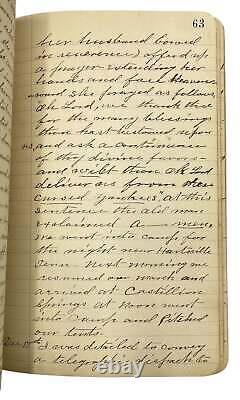 63
her husband bowed
in reverence) offered up
a prayer extending her
hands and face Heaven
ward she prayed as follows
Oh Lord, we thank thee
for the many blessings
thou hast bestowed upon
us and ask a continuance
of thy divine favors
and wilt thou Oh Lord
deliver us from the
cursed "yankees" at this
sentence the old man
exclaimed A-men
We went into camp for
the night near Hartsville
Tenn. Next morning we
resumed our march and
arrived at Castillion
Springs at Noon went
into Camp and Pitched
our tents.
I was detailed to convey
a telegraphic dispatch to